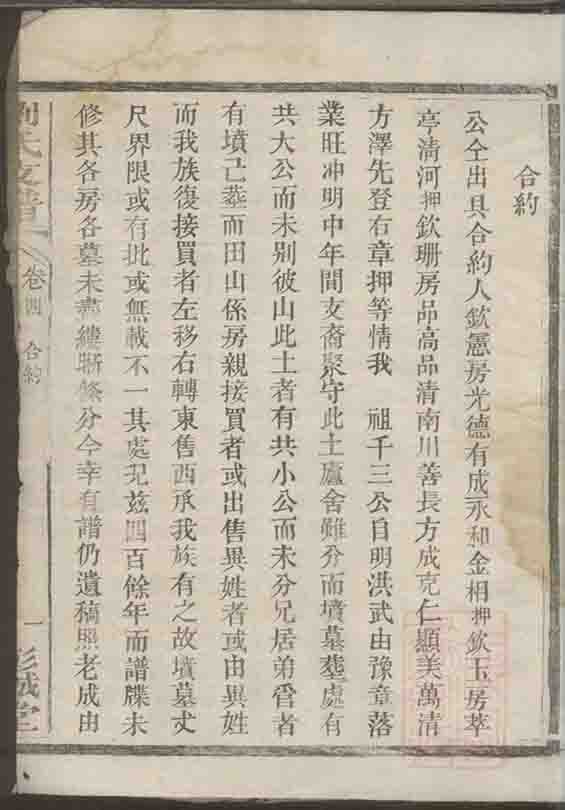 合約
公仝出具合約人欽憲房光德有成永和金相押欽玉房萃
亭清河押欽珊房品高品清南川善長方成克仁顯美萬清
方澤先登右章押等情我 祖千三公自明洪武由豫章落
業旺冲明中年間支裔聚守此土廬舍雖分而墳墓塟處有
共大公而未別彼山此土者有共小公而未分兄居弟窅者
有墳己塟而田山係房親接買者或出售異姓者或由異姓
而我族復接買者左移右轉東售西承我族有之故墳墓丈
尺界限或有批或無載不一其處况茲四百餘年而譜牒未
修其各房各墓未盡縷晰條分今幸有譜仍遺稿照老成由
劉氏支譜
卷四
合約
一
彭城堂